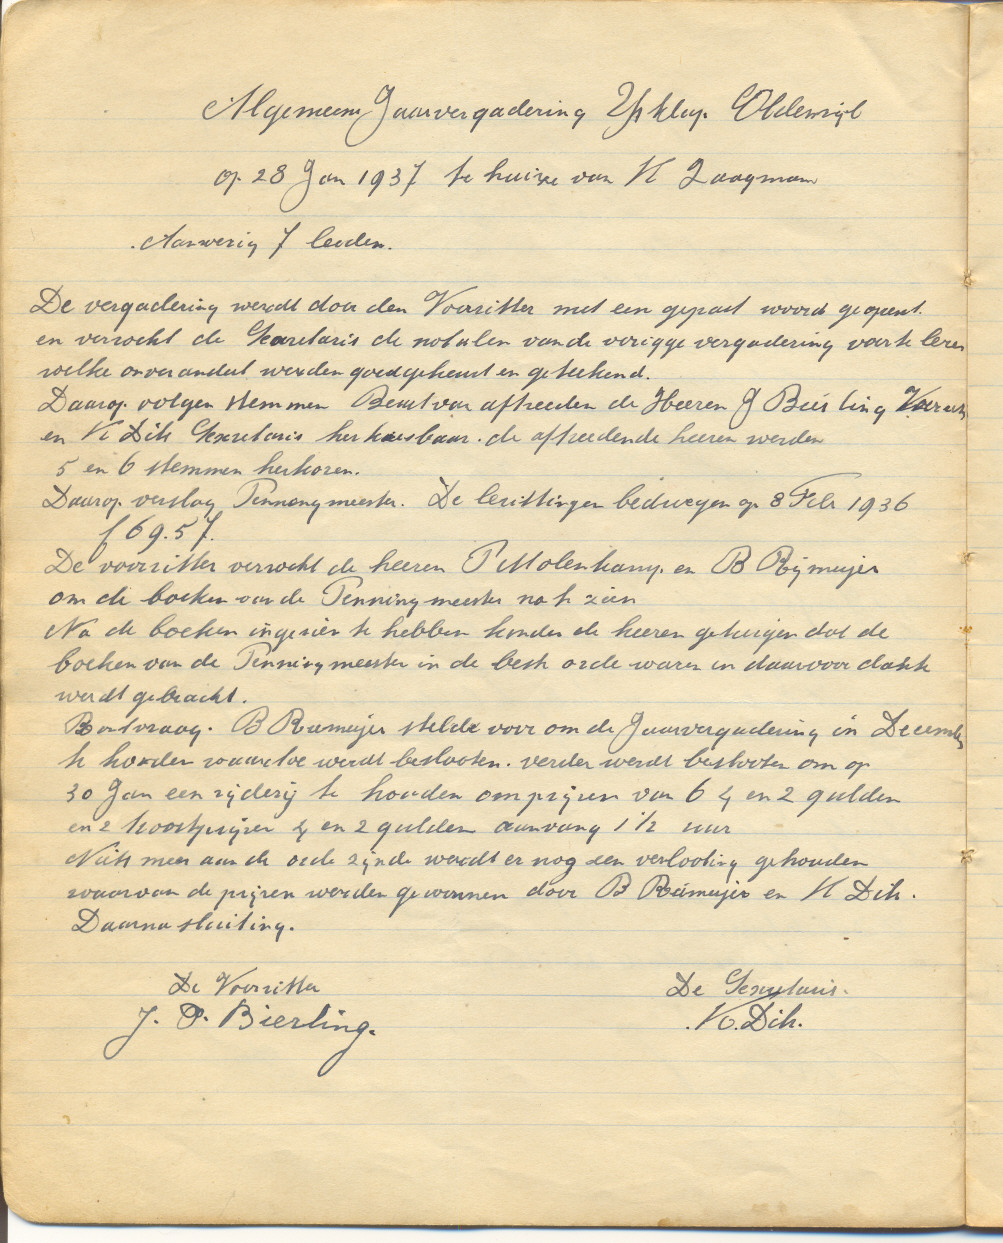 Algemeene Jaarvergadering Ysklup. Oldemijl
op 28 Jan 1937 te huize van K Zaagman
Aanwezig 7 leeden.
De vergadering werdt door den Voorzitter met een gepast woord geopent.
en verzocht de Secretaris de notulen van de vorigge vergadering voor te lezen
welke onverandert werden goedgekeurt en geteekend.
Daarop volgen stemmen Bestuur aftreeden de Heeren J Bierling
en K Dik Secretaris herkiesbaar. de aftreedende heeren werden
5 en 6 stemmen herkozen.
Daarop verslag Penningmeester. De bezittingen bedroegen op 8 Febr 1936
f 69.57.
De voorzitter verzocht de heeren P Molenkamp. en B Rijmeijer
om de boeken van de Penningmeester na te zien
Na de boeken ingezien te hebben konden de heeren getuigen dat de
boeken van de Penningmeester in de beste orde waren en daarvoor dank
werdt gebracht.
Rontvraag. B Reimeijer stelde voor om de Jaarvergadering in December
te houden waartoe werdt beslooten. verder werdt beslooten om op
30 Jan een rijderij te houden om prijzen van 6 4 en 2 gulden
en 2 troostprijzen 4 en 2 gulden aanvang 1 1/2 uur
Niets meer aan de orde zijnde wordt er nog een verlooting gehouden
waarvan de prijzen worden gewonnen door B Reimeijer en K Dik.
Daarna sluiting.
De Voorzitter
De Secretaris.
J. P. Bierling.
K. Dik.